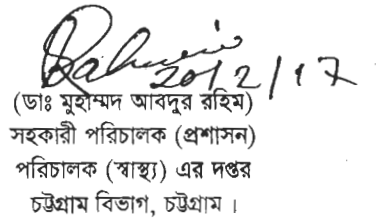 Rahim
20/2/17
(ডাঃ মুহাম্মদ আবদুর রহিম)
সহকারী পরিচালক (প্রশাসন)
পরিচালক (স্বাস্থ্য) এর দপ্তর
চট্টগ্রাম বিভাগ, চট্টগ্রাম ।